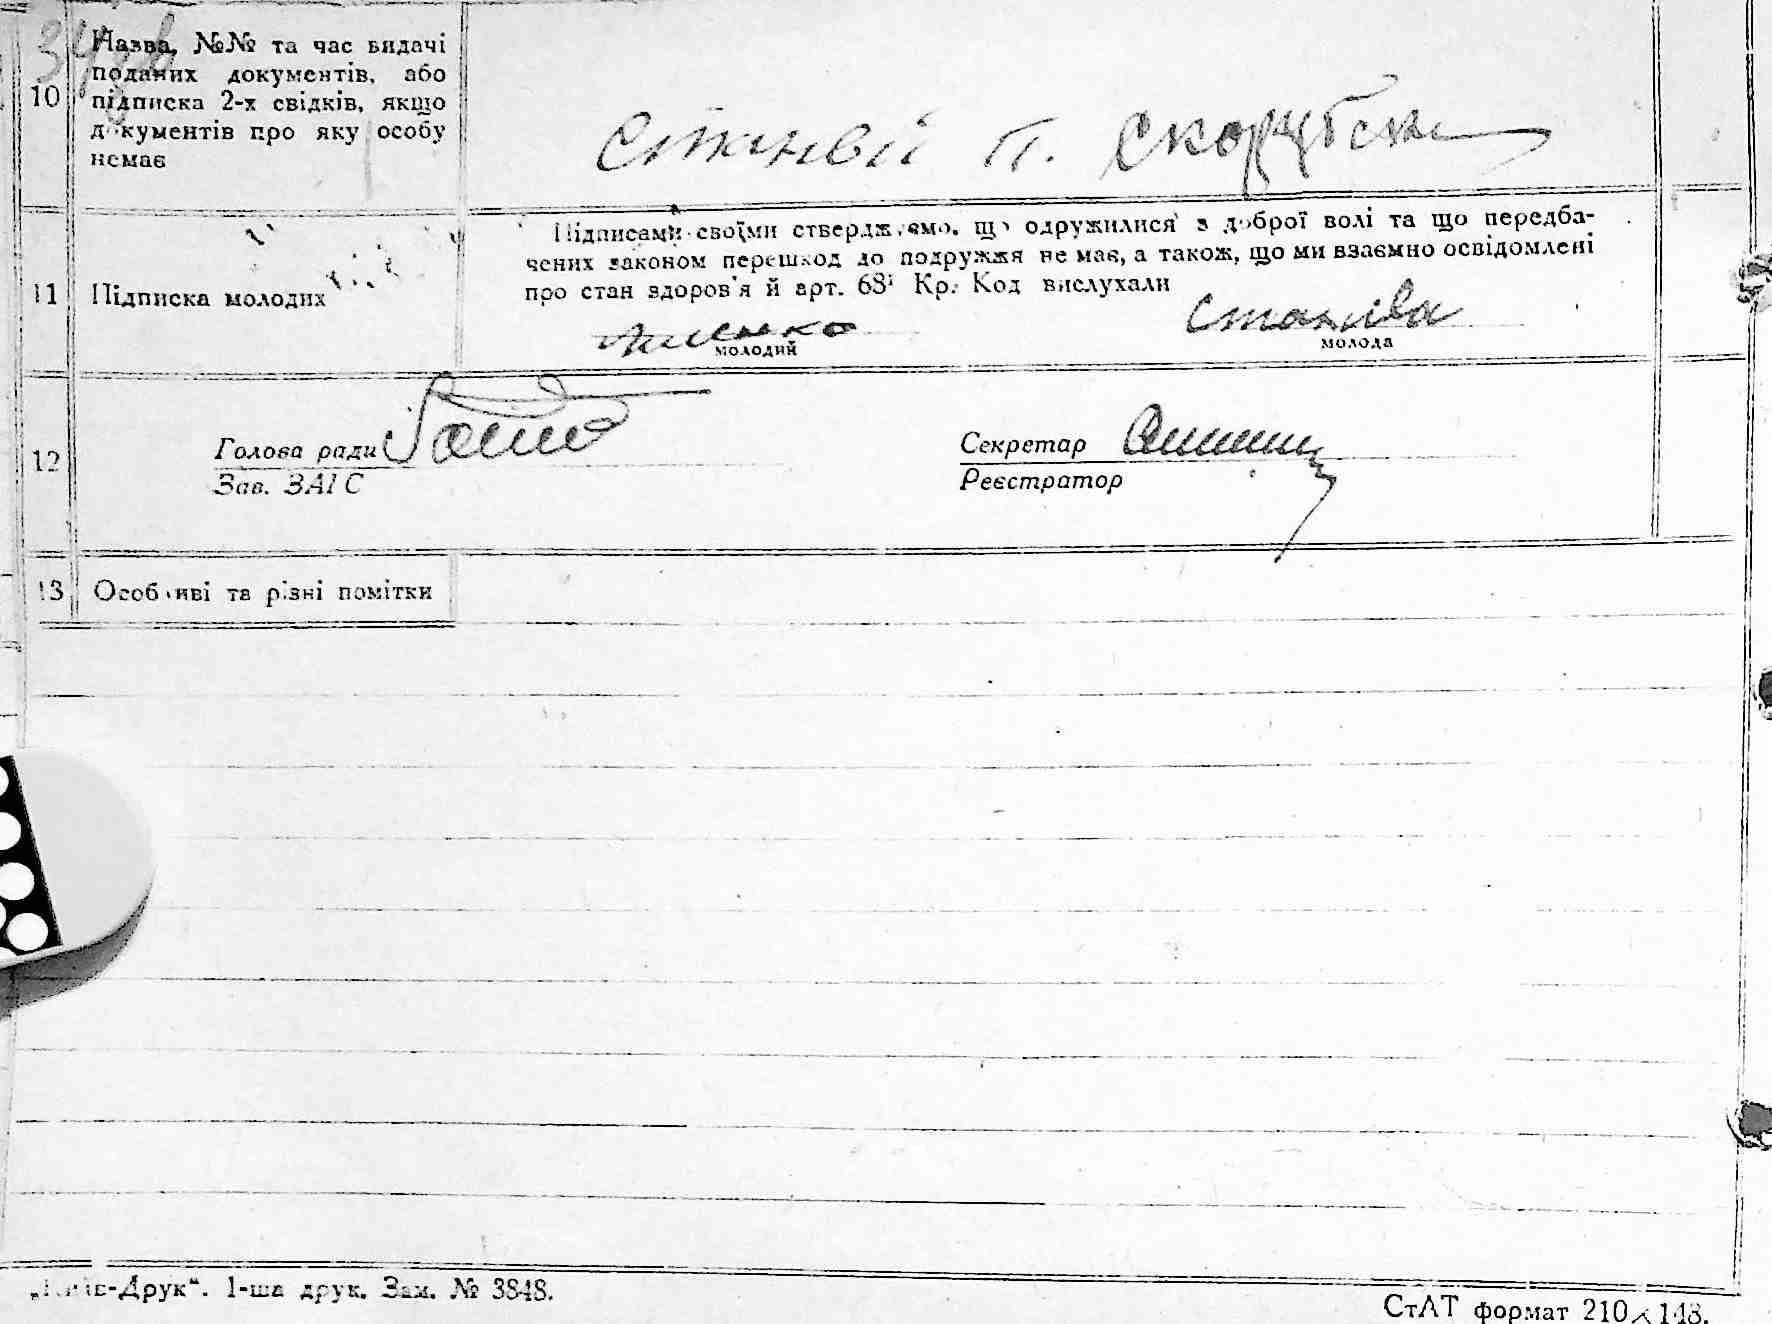 10 Назва, №№ та час видачі
поданих документів, або
підписка 2-х свідків, якщо
документів про яку особу
немає
Підписами своїми стверджуємо, що одружилися з доброї волі та що передба-
чених законом перешкод до подружжя не має, а також, що ми взаємно освідомлені
про стан здоров'я й арт. 68¹ Кр. Код вислухали
11 Підписка молодих
молодий
молода
12 Голова ради
Зав. ЗАГС
Секретар
Реєстратор
13 Особливі та різні помітки
„Київ-Друк“. 1-ша друк. Зам. № 3848.
СтАТ формат 210×148.